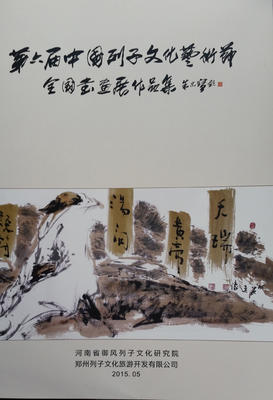 第六届中国列子文化艺術节
全国书画展作品集
天瑞
黄帝
湯问
河南省御风列子文化研究院
郑州列子文化旅游开发有限公司
2015.05